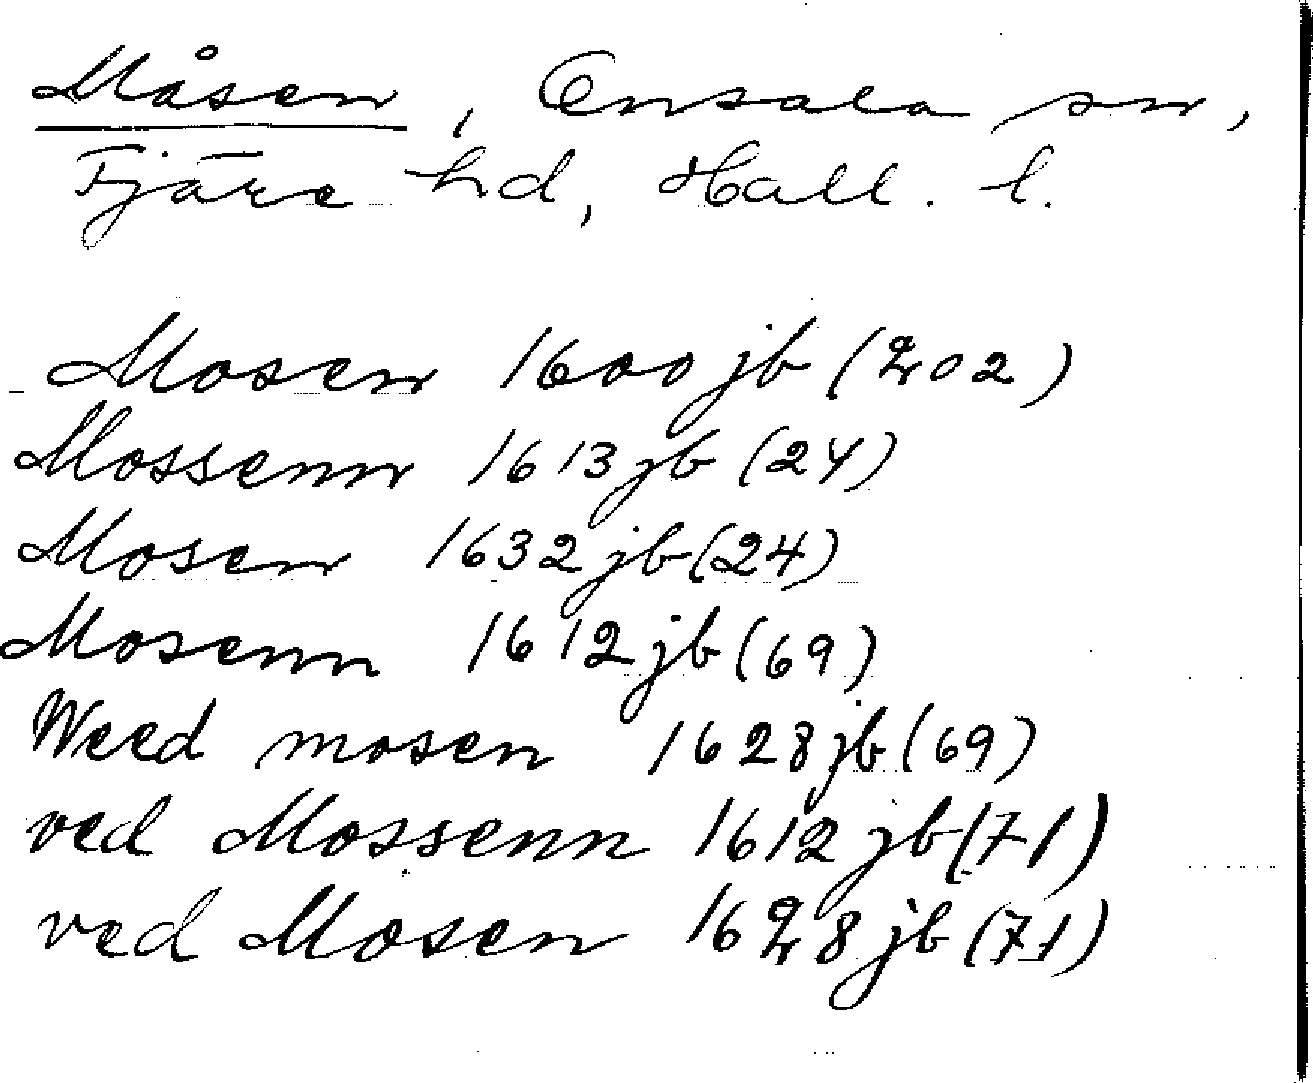 Måsen, Onsala sn,
Fjäre hd, Hall. l.
Mosen 1600 jb (202)
Mossenn 1613 jb (24)
Mosen 1632 jb (24)
Mosenn 1612 jb (69)
Weed mosen 1628 jb (69)
ved Mossenn 1612 jb (71)
ved Mosen 1628 jb (71)